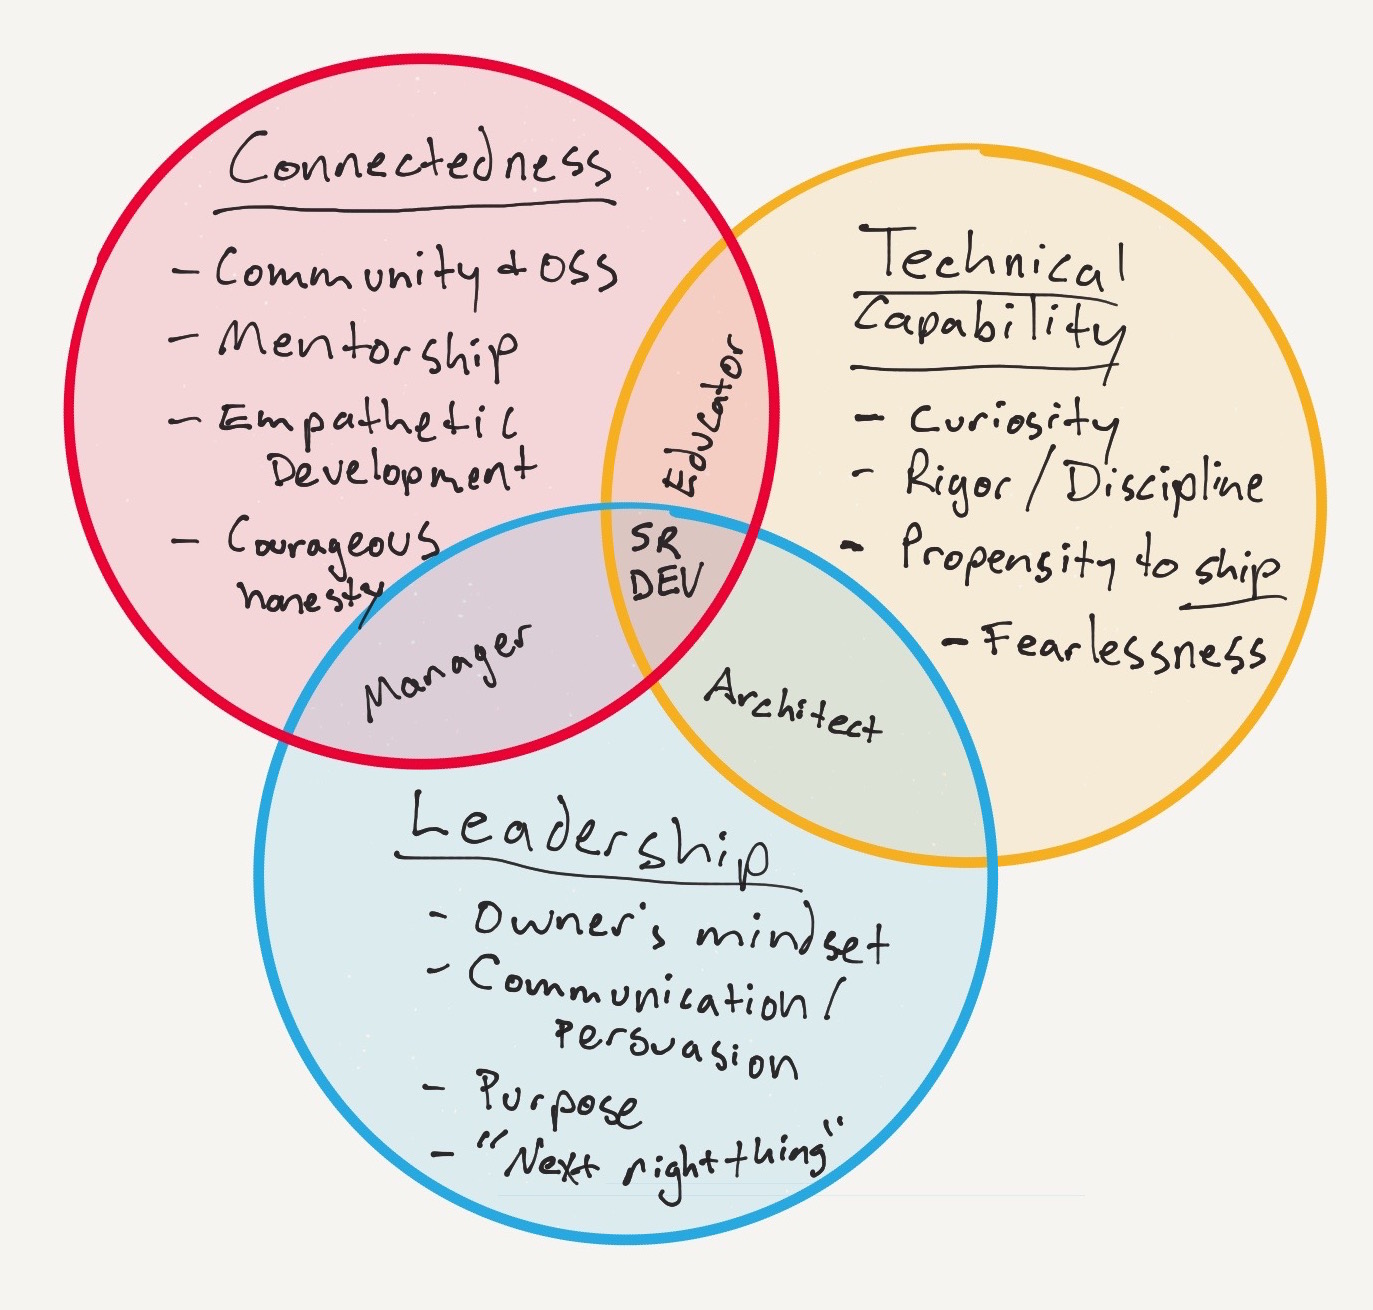 Connectedness
- Community + OSS
- Mentorship
- Empathetic
Development
- Courageous
honesty
Technical
Capability
- Curiosity
- Rigor / Discipline
- Propensity to ship
- Fearlessness
Educator
SR
DEV
Manager
Architect
Leadership
- Owner's mindset
- Communication /
Persuasion
- Purpose
- "Next right thing"